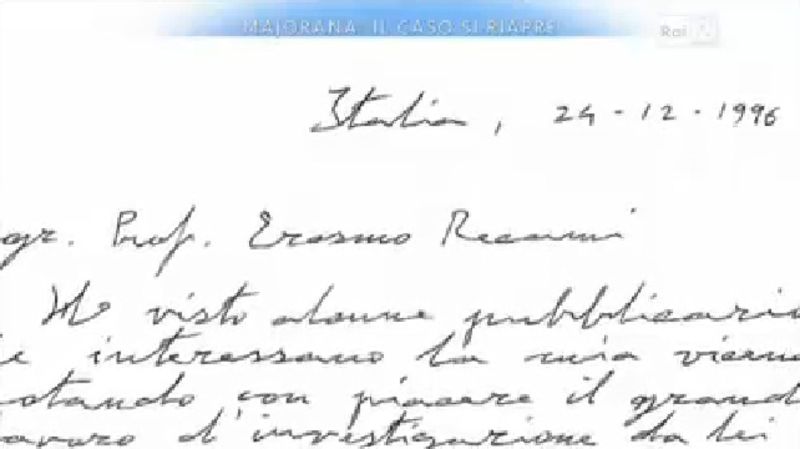 MAJORANA: IL CASO SI RIAPRE
Rai
Italia, 24-12-1996
gr. Prof. Erasmo Recami
Ho visto alcune pubblicazio
e interessano la mia vicen
otando con piacere il grand
lavoro d'investigazione da lei